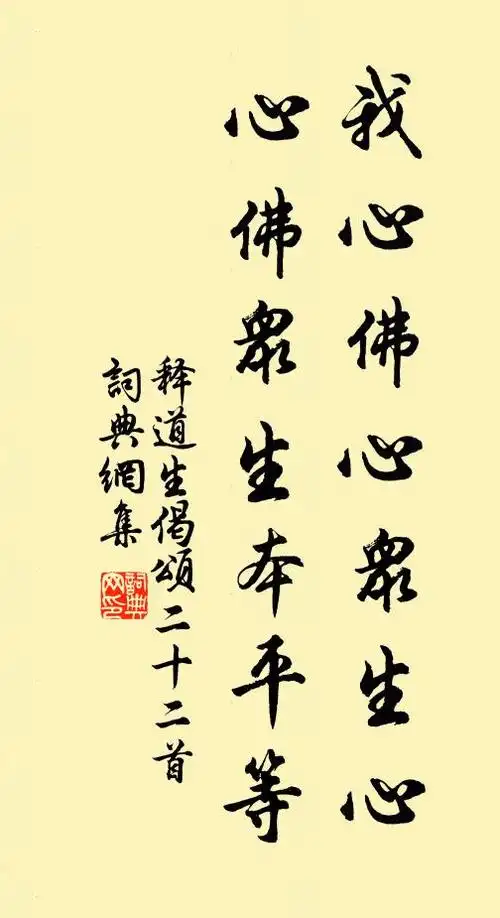 我心佛心衆生心
心佛衆生本平等
释道生偈頌二十二首
詞典網集
詞典网印